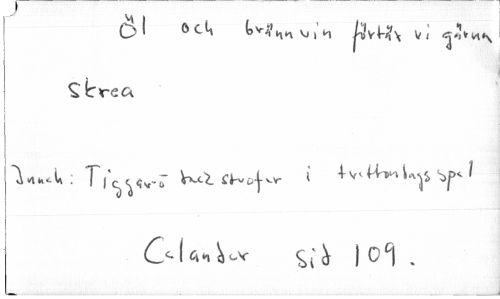 Öl och brännvin förtär vi gärna
skrea
Inneh: Tiggarö strofer i trettondagsspel
Celander sid 109.